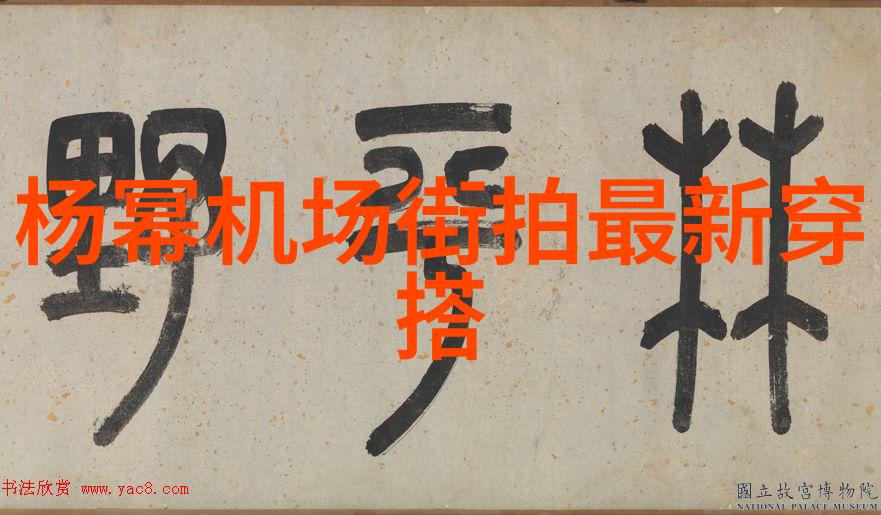 林乎野
杨幂机场街拍最新穿
搭
书法欣赏 www.yac8.com
國立故宮博物院
NATIONAL PALACE MUSEUM